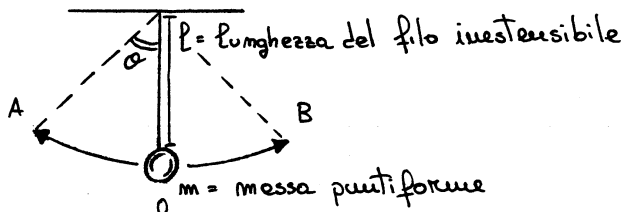 l = lunghezza del filo inestensibile
θ
A
B
m = massa puntiforme
O